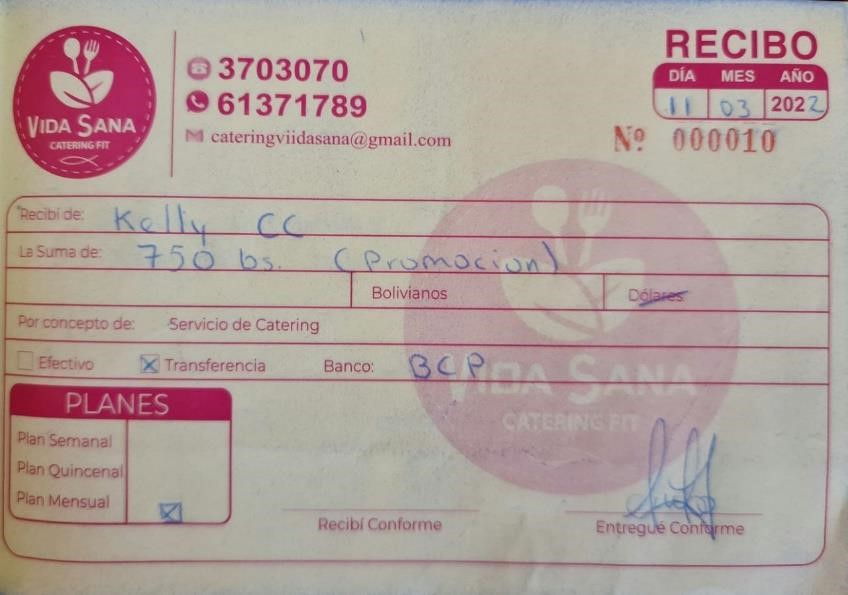 VIDA SANA
CATERING FIT
3703070
61371789
cateringviidasana@gmail.com
RECIBO
DÍA MES AÑO
11 03 2022
Nº 000010
Recibí de: Kelly CC
La Suma de: 750 bs. (Promocion)
Bolivianos Dólares
Por concepto de: Servicio de Catering
Efectivo Transferencia Banco: BCP
VIDA SANA
CATERING FIT
PLANES
Plan Semanal
Plan Quincenal
Plan Mensual
Recibí Conforme Entregué Conforme